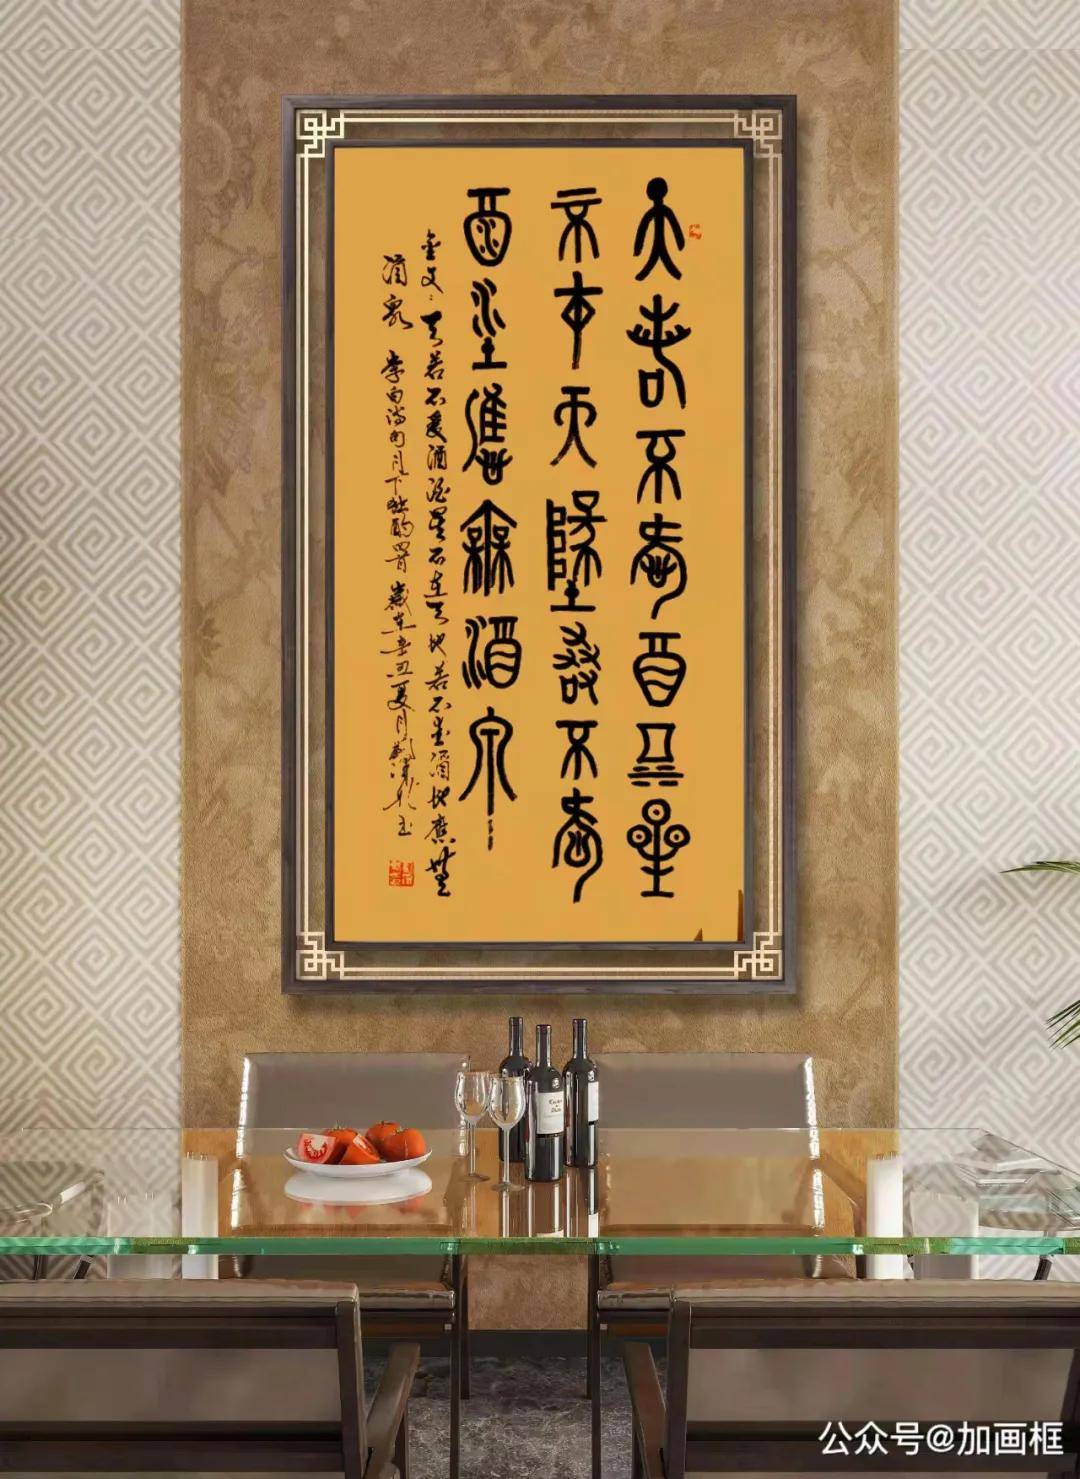 天若不愛酒酒星
不在天地若不愛
酒地應無酒泉
金文：天若不爱酒酒星不在天地若不爱酒地應無
酒泉 李白诗句月下独酌四首 岁在辛丑夏月
公众号@加画框